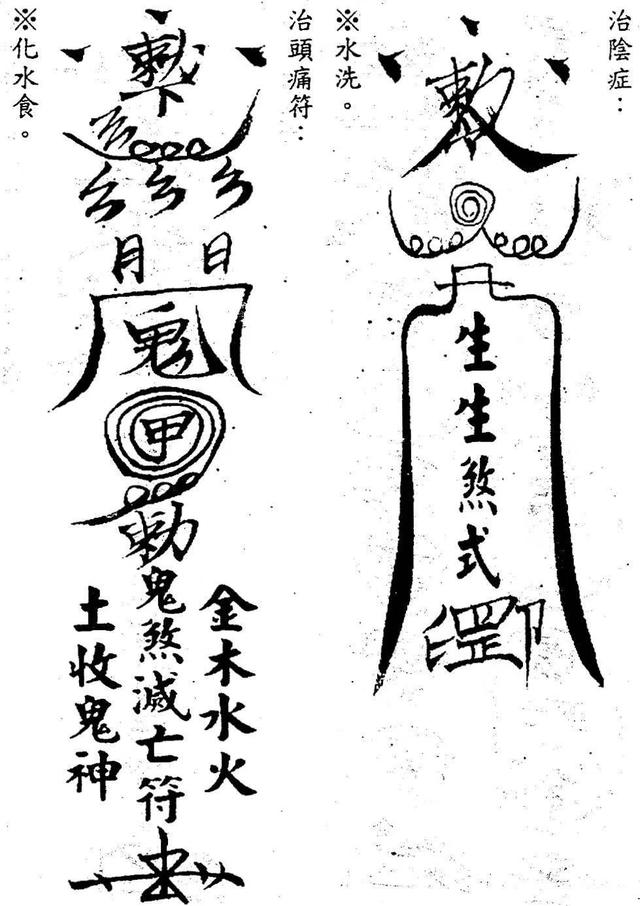 治陰症：
敕
生生煞式
罡
※水洗。
治頭痛符：
敕下
日月
鬼
甲
勅
鬼煞滅亡符
金木水火
土收鬼神
※化水食。